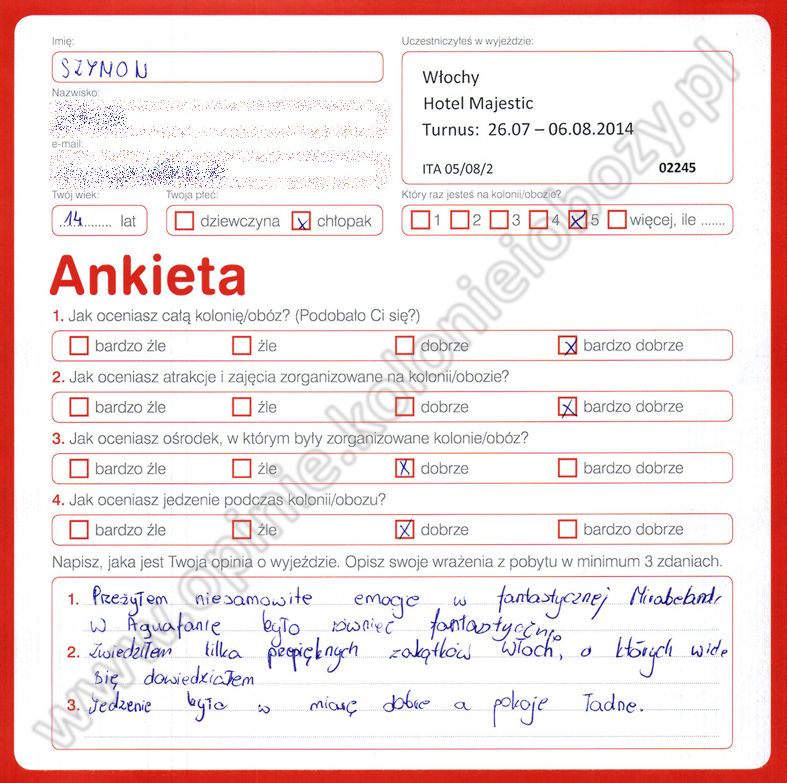 Imię:
SZYMON
Nazwisko:
e-mail:
Twój wiek:
14 lat
Twoja płeć:
dziewczyna x chłopak
Uczestniczyłeś w wyjeździe:
Włochy
Hotel Majestic
Turnus: 26.07 – 06.08.2014
ITA 05/08/2 02245
Który raz jesteś na kolonii/obozie?
1 2 3 4 x 5 więcej, ile .......
Ankieta
1. Jak oceniasz całą kolonię/obóz? (Podobało Ci się?)
bardzo źle źle dobrze x bardzo dobrze
2. Jak oceniasz atrakcje i zajęcia zorganizowane na kolonii/obozie?
bardzo źle źle dobrze x bardzo dobrze
3. Jak oceniasz ośrodek, w którym były zorganizowane kolonie/obóz?
bardzo źle źle x dobrze bardzo dobrze
4. Jak oceniasz jedzenie podczas kolonii/obozu?
bardzo źle źle x dobrze bardzo dobrze
Napisz, jaka jest Twoja opinia o wyjeździe. Opisz swoje wrażenia z pobytu w minimum 3 zdaniach.
1. Przeżyłem niesamowite emocje w fantastycznej Mirabelandi
w Aquafanie było również fantastycznie
2. Zwiedziłem kilka przepięknych zakątków Włoch, o których wiele
się dowiedziałem
3. Jedzenie było w miarę dobre a pokoje ładne.
www.opinie.kolonieiobozy.pl